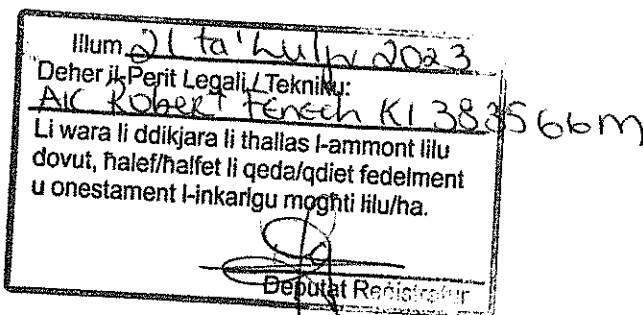 Illum 21 ta' Lulju 2023
Deher il-Perit Legali / Tekniku:
AIC Robert Fenech KI 383566M
Li wara li ddikjara li tħallas l-ammont lilu
dovut, ħalef/ħalfet li qeda/qdiet fedelment
u onestament l-inkarigu mogħti lilu/ha.
Deputat Reġistratur